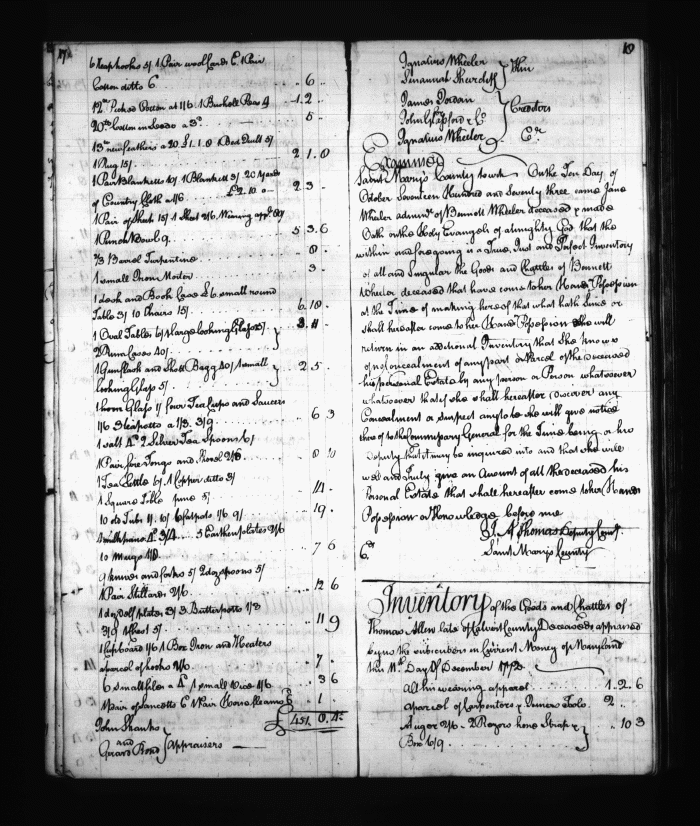 17
6 Reap hooks 5/ 1 Pair wool Cards & 1 Pair
Cotton ditto 6 .. 6 ..
12lb Picked Cotton at 1/6 1 Bushell Peas 4 .. 1.2 ..
20lb Cotton in Seeds a 3d .. 5 ..
13lb new feathers a 20 £1.1.8 1 Bed Quilt 5/
1 Rug 15/ .. 2 1.8
1 Pair Blanketts 10/ 1 Blankett 3/ 20 yards
of Country Cloth at 1/6 £2.10.0 .. 2 3 ..
1 Pair of Sheets 15/ 1 Sheet 2/6 Wearing app.
1 Punch Bowl 9. .. 5 3.6
2/3 Barrel Turpentine .. 8 ..
1 small Iron .. 3 ..
1 Desk and Book Case £6 small round
Table 3/ 10 Chairs 15/ .. 6.18 ..
1 Oval Table 1 large looking Glass 25/
40/ .. 3.11
1 Gunflask and Shot Bagg 1 small
looking Glass 5/ .. 2 5 ..
1 hour Glass 1/ four Tea Cups and Saucers
1/6 3 teapotts a 1/3. 3/9 .. 6 3
1 salt 4d 2 Silver Tea Spoons 6/
1 Pair fire Tongs and Shovel 2/6 .. 8 10
1 Tea Kettle 6/ 1 Copper ditto 8/ .. 14 ..
1 Square Table pine 5/
10 old Tubs 1/6 9/ .. 19 ..
3 Earthen plates 2/6
10 Mugs .. 7 6
9 knives and forks 5/ 2 doz spoons 5/
1 Pair Stillards 2/6 .. 12 6
1 doz Delf plates 3/ 3 Butterpotts 1/3
3/9 1 Chest 5/ .. 11 9
1 Cupboard 1/6 1 Box Iron and Heaters
a parcel of books 2/6 .. 7 ..
6 small files a 4d 1 small Vice 1/6 .. 3 6
1 Pair of Lancetts & 1 Pair Horse fleams .. 1 ..
£ 451.0.4
John Shanks
and
Gerard Bond } Appraisers
18
Ignatius Wheeler
Susannah } Kin
James Jordan
John Glassford & Co. } Creditors
Ignatius Wheeler
Exr
Examined
Saint Marys County to wit On the Ten Day of
October Seventeen Hundred and Seventy three came Jane
Wheeler admrx of Bennett Wheeler deceased & made
Oath on the Holy Evangels of almighty God that the
within and foregoing is a True, Just and Perfect Inventory
of all and Singular the Goods and Chattles of Bennett
Wheeler deceased that have come to her Hands Possession
at the Time of making hereof that what hath Since or
shall hereafter come to her Hands Possession she will
return in an additional Inventory that She knows
of no Concealment of any part or Parcel of the Deceased
his personal Estate by any person or Persons whatsoever
whatsoever that if she shall hereafter discover any
Concealment or suspect any to be she will give notice
thereof to the Commissary General for the Time being or his
Deputy that it may be inquired into and that she will
well and truly give an Amount of all the deceased his
Personal Estate that shall hereafter come to her Hands
Possession or Knowledge before me
J. A. Thomas Deputy Comy
Saint Mary's County
Inventory of the Goods and Chattles of
Thomas Allen late of Calvert County Deceased appraised
by us the subscribers in Current Money of Maryland
this 11th Day of December 1772
All his wearing apparel .. 1.2.6
a parcel of Carpenters & Joiners Tools 2 .. ..
Auger 2/6 2 Razors hone Strap &
Box 6/9 .. } .. 10 3